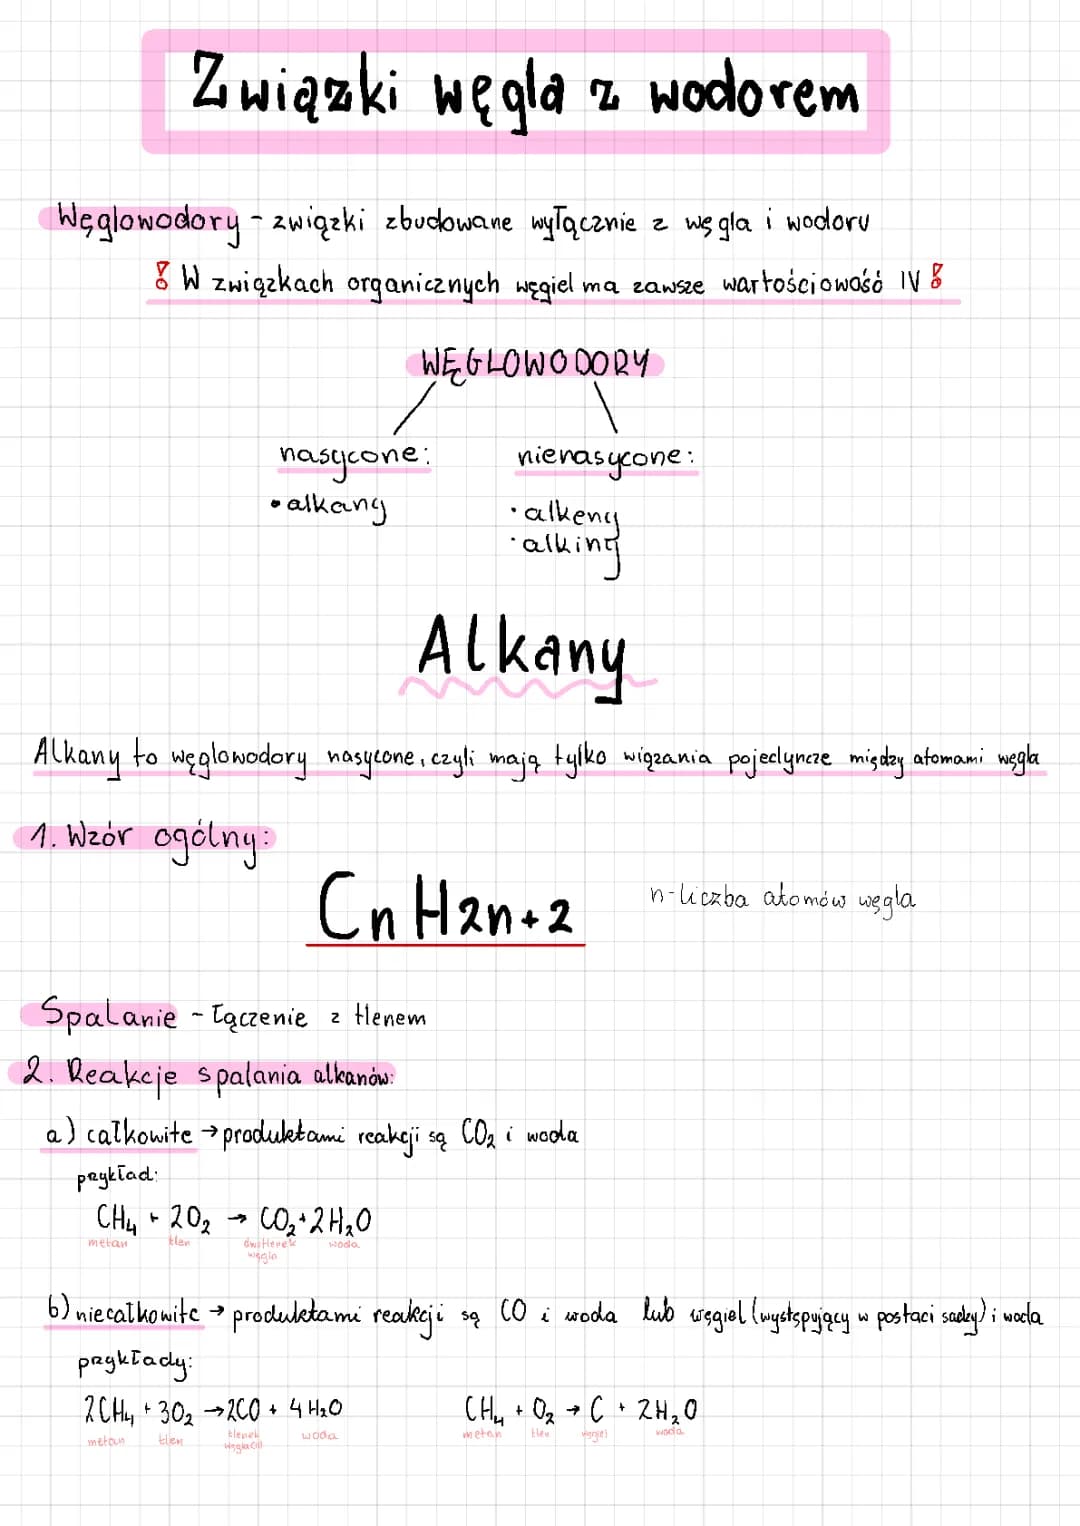 Związki węgla z wodorem
Węglowodory - związki zbudowane wyłącznie z węgla i wodoru
! W związkach organicznych węgiel ma zawsze wartościowość IV !
WĘGLOWODORY
nasycone: nienasycone:
• alkany
· alkeny
· alkiny
Alkany
Alkany to węglowodory nasycone, czyli mają tylko wiązania pojedyncze między atomami węgla
1. Wzór ogólny:
CnH2n+2 n-liczba atomów węgla
Spalanie - łączenie z tlenem
2. Reakcje spalania alkanów:
a) całkowite → produktami reakcji są CO₂ i woda
przykład:
CH₄ + 2O₂ → CO₂ + 2H₂O
metan tlen dwutlenek woda
węgla
b) niecałkowite → produktami reakcji są CO i woda lub węgiel (występujący w postaci sadzy) i woda
przykłady:
2CH₄ + 3O₂ → 2CO + 4H₂O CH₄ + O₂ → C + 2H₂O
metan tlen tlenek woda metan tlen węgiel woda
węgla(II)